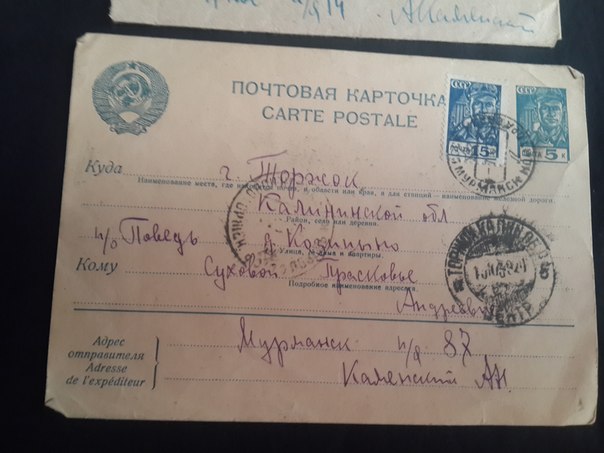 п/я 14
ПОЧТОВАЯ КАРТОЧКА
CARTE POSTALE
СССР
15
5 К
МУРМАНСК
Куда
г. Торжок
Наименование места, где находится почта, и области или края, а для станций – наименование железной дороги.
Калининской обл
Район, село или деревня.
п/о Поведь
д.
Улица, № дома и квартиры.
Кому
Суховой Прасковье
Подробное наименование адресата
Андреевне
Адрес
отправителя
Adresse
de l'expéditeur
Мурманск п/я 87
Каленский АН